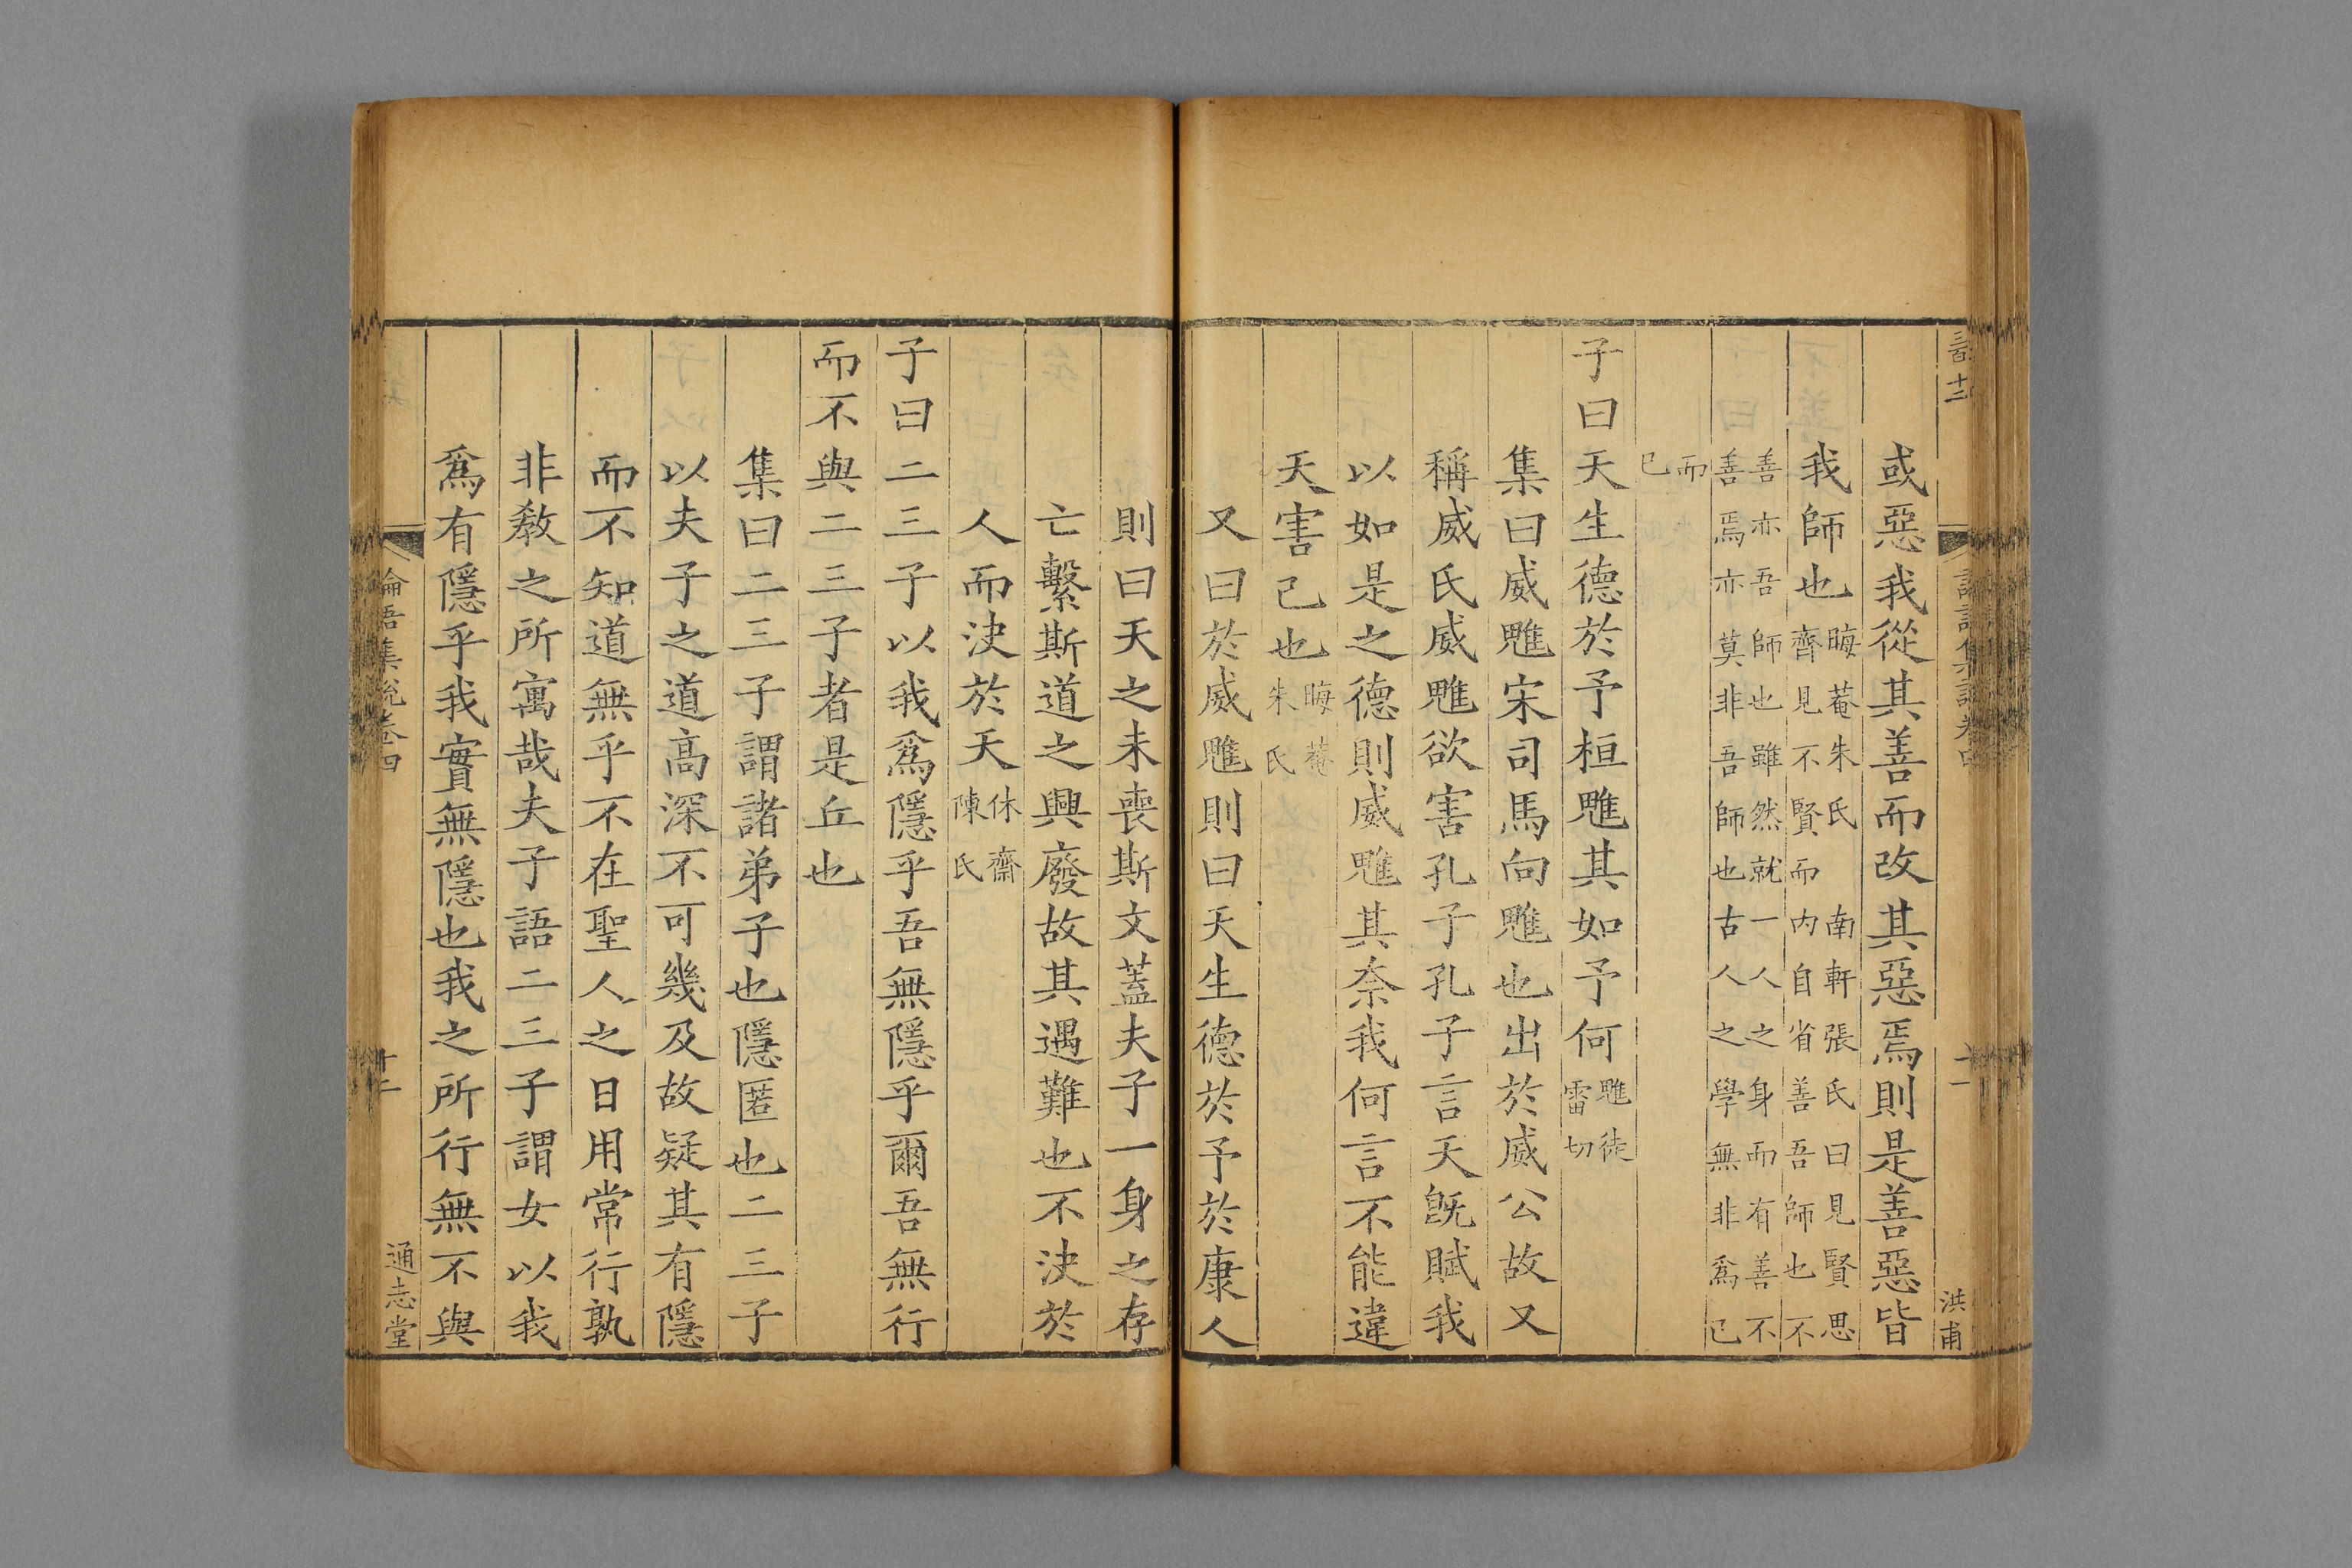 三百十二
論語集說卷四
十一
洪甫
或惡我從其善而改其惡焉則是善惡皆
我師也
晦菴朱氏 南軒張氏曰見賢思
齊見不賢而內自省善吾師也不
善亦吾師也雖然就一人之身而有善不
善焉亦莫非吾師也古人之學無非爲己
而
已
子曰天生德於予桓魋其如予何
魋徒
雷切
集曰威魋宋司馬向魋也出於威公故又
稱威氏威魋欲害孔子孔子言天旣賦我
以如是之德則威魋其奈我何言不能違
天害己也
晦菴
朱氏
又曰於威魋則曰天生德於予於康人
則曰天之未喪斯文蓋夫子一身之存
亡繫斯道之興廢故其遇難也不決於
人而決於天
休齋
陳氏
子曰二三子以我爲隱乎吾無隱乎爾吾無行
而不與二三子者是丘也
集曰二三子謂諸弟子也隱匿也二三子
以夫子之道高深不可幾及故疑其有隱
而不知道無乎不在聖人之日用常行孰
非教之所寓哉夫子語二三子謂女以我
爲有隱乎我實無隱也我之所行無不與
論語集說卷四
十一
通志堂